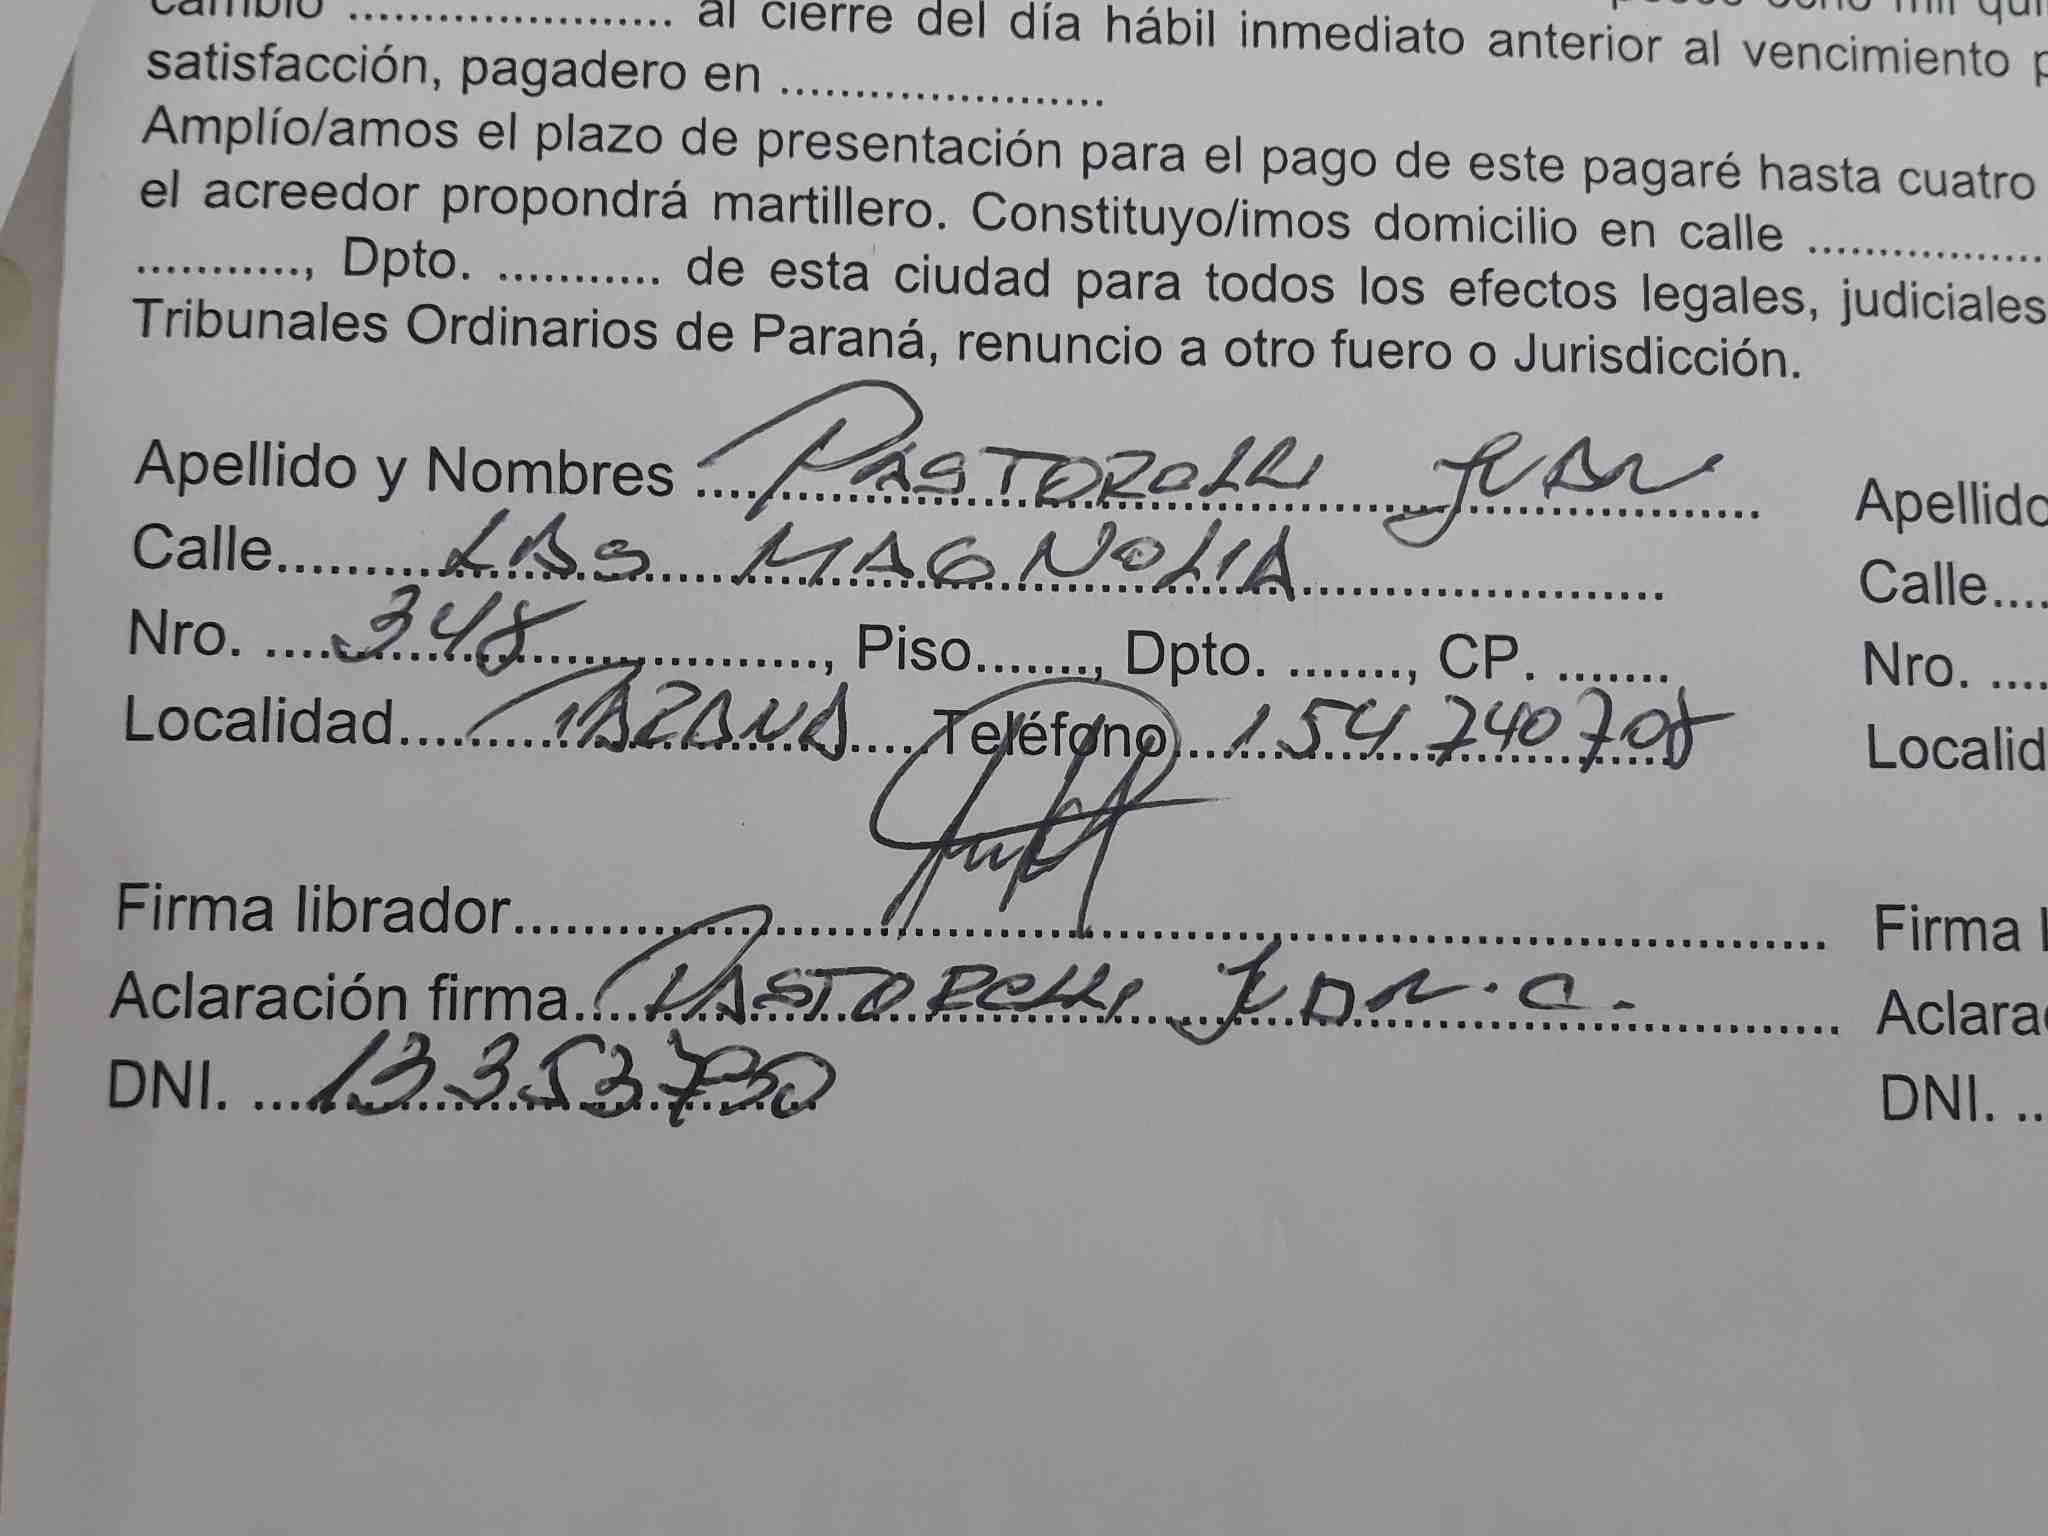 cambio ...................... al cierre del día hábil inmediato anterior al vencimiento p
satisfacción, pagadero en ......................
Amplío/amos el plazo de presentación para el pago de este pagaré hasta cuatro
el acreedor propondrá martillero. Constituyo/imos domicilio en calle .................
..........., Dpto. ........... de esta ciudad para todos los efectos legales, judiciales
Tribunales Ordinarios de Paraná, renuncio a otro fuero o Jurisdicción.
Apellido y Nombres PASTORELLI JUAN
Calle LAS MAGNOLIA
Nro. 348, Piso........, Dpto. ........, CP. ........
Localidad PARANA Teléfono 154 740708
Firma librador
Aclaración firma PASTORELLI JUAN. C.
DNI. 13353790
Apellido
Calle....
Nro. ....
Localid
Firma l
Aclara
DNI. ..